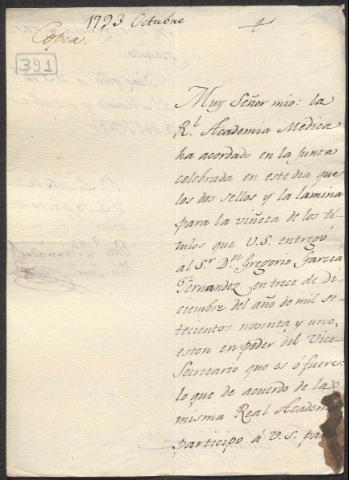 1793 Octubre
Copia.
391
Muy Señor mio: la
Rl. Academia Médica
ha acordado en la junta
celebrada en este dia que
los dos sellos y la lamina
para la viñeta de los tí-
tulos que V.S. entregó
al Sr. Dn. Gregorio Garcia
Fernandez en trece de di-
ciembre del año de mil se-
tecientos noventa y uno,
esten en poder del Vice-
Secretario que es ó fuere:
lo que de acuerdo de la
misma Real Academ
participo á V.S. pa